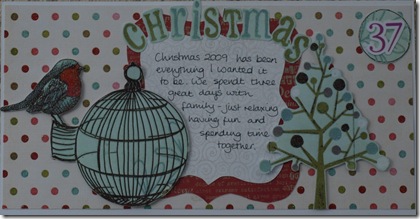 CHRiSTmAS
37
Christmas 2009 has been
everything I wanted it
to be. We spent three
great days with
family - just relaxing
having fun and
spending time
together.